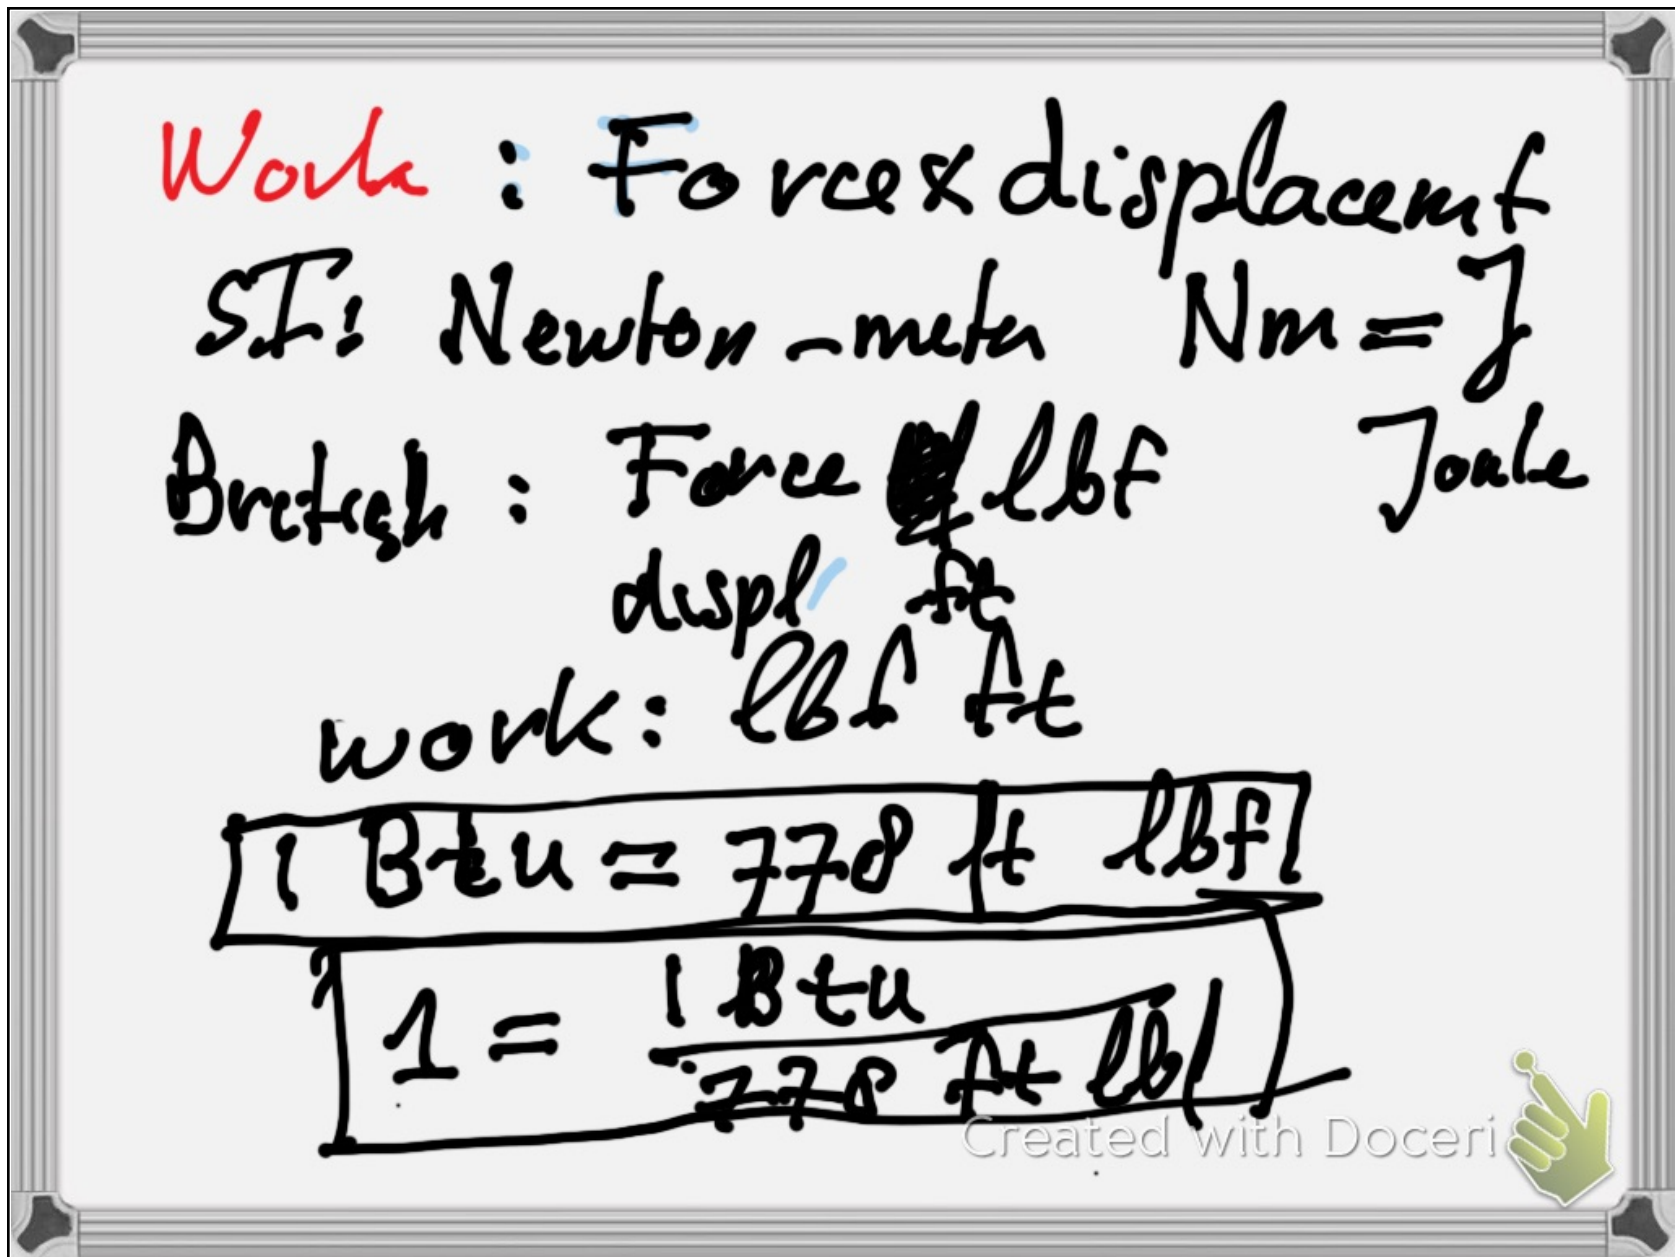 Work : Force x displacemt
SI: Newton-meter Nm = J
Joule
British : Force lbf
displ ft
work: lbf ft
1 Btu = 778 ft lbf
1 = 1 Btu / 778 ft lbf
Created with Doceri